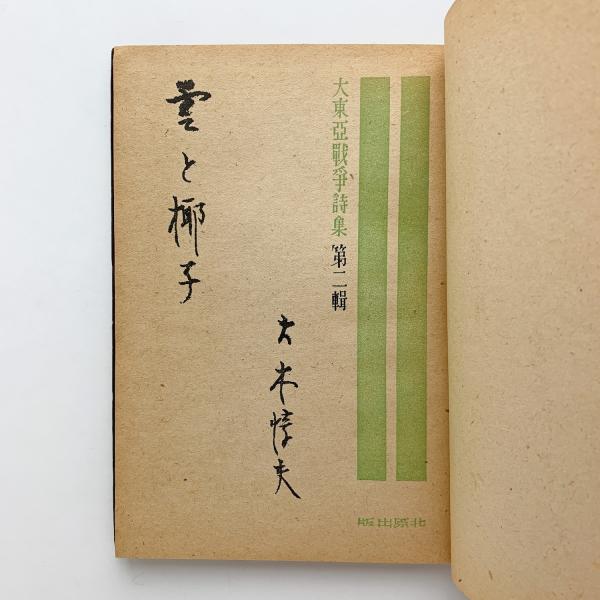 大東亞戰爭詩集 第二輯
雲と椰子
大木惇夫
北原出版